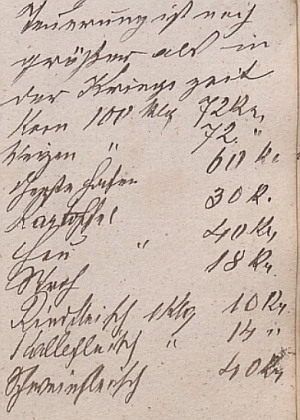 Teuerung ist noch
größer als in
der Kriegs zeit
Korn 100 klg 72 Kr,
Weizen " 72. "
Gerste Hafer 60 K.
Kartoffel 30 K.
Heu " 40 Kr,
Stroh 18 Kr,
Rindfleisch 1 klg 10 Kr,
Kalbfleisch " 14 "
Schweinfleisch 40 Kr,